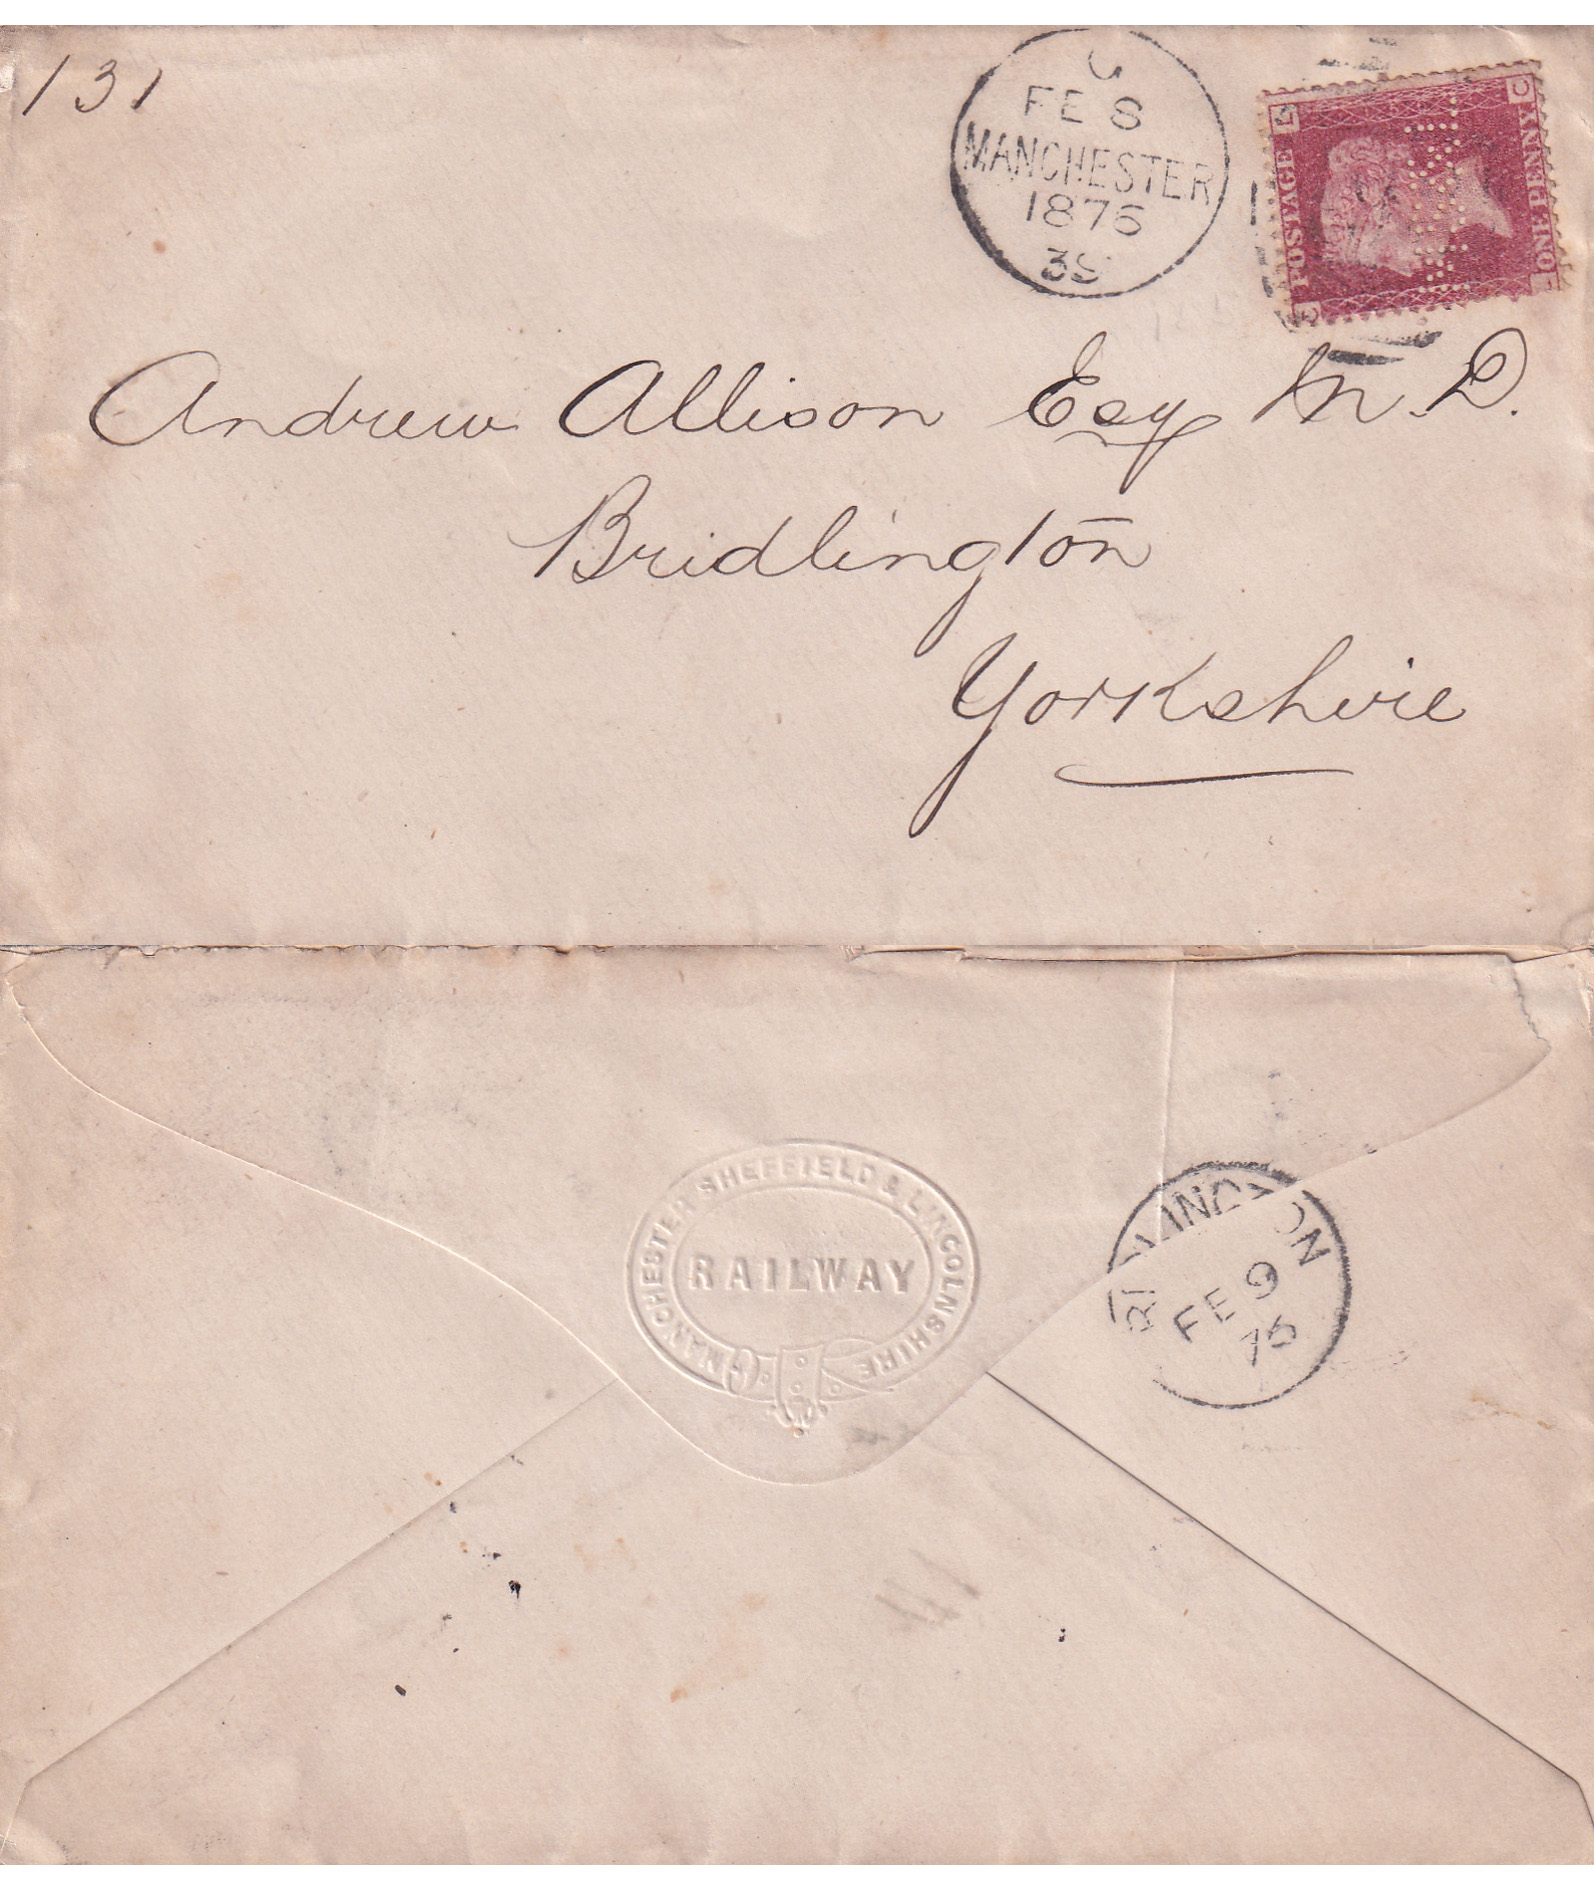 131
FE 8
MANCHESTER
1876
39
POSTAGE
ONE PENNY
L
C
C
L
Andrew Allison Esqr M.D.
Bridlington
Yorkshire
MANCHESTER SHEFFIELD & LINCOLNSHIRE
RAILWAY
BRIDLINGTON
FE 9
76